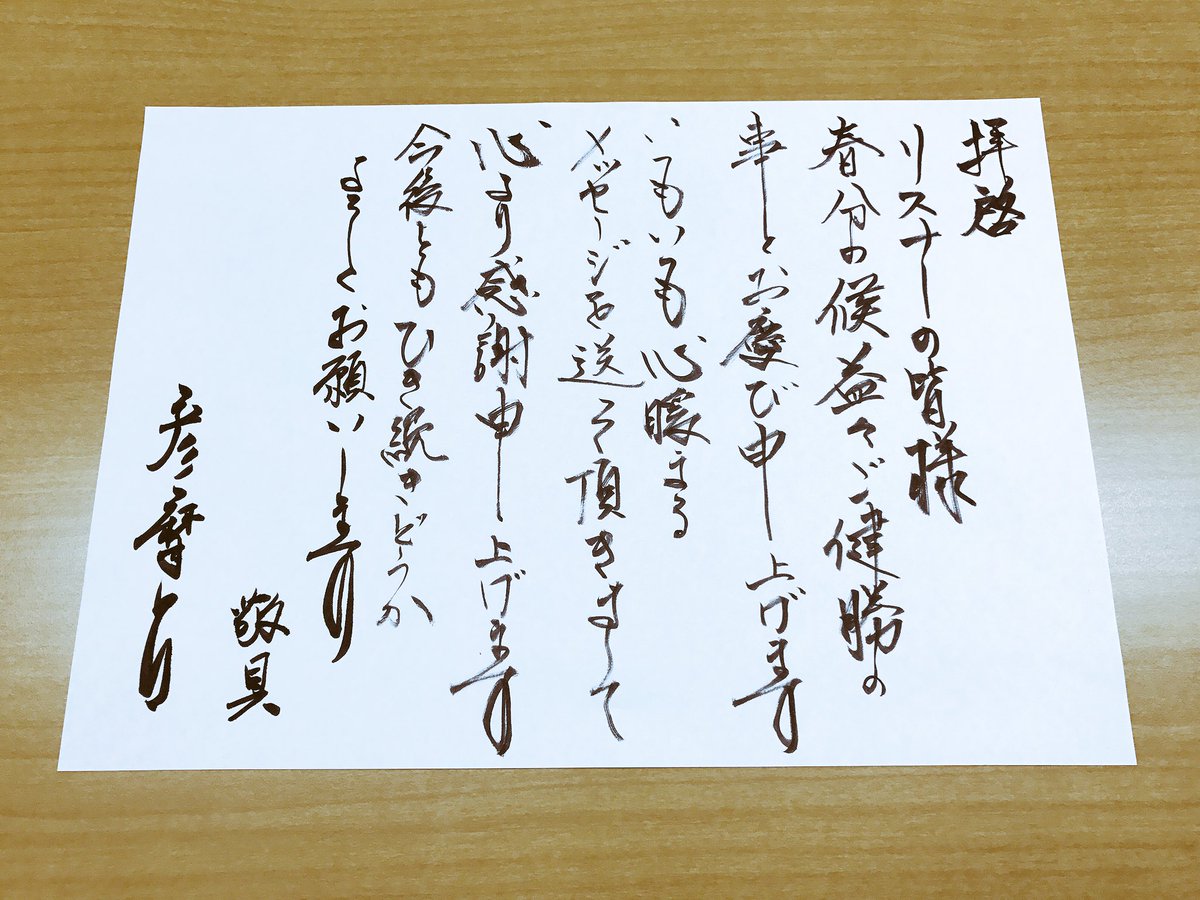 拝啓
リスナーの皆様
春分の候 益々ご健勝の
事とお慶び申し上げます
いつもいつも心暖まる
メッセージを送って頂きまして
心より感謝申し上げます
今後とも ひき続き どうか
よろしくお願いします
敬具
彦摩呂